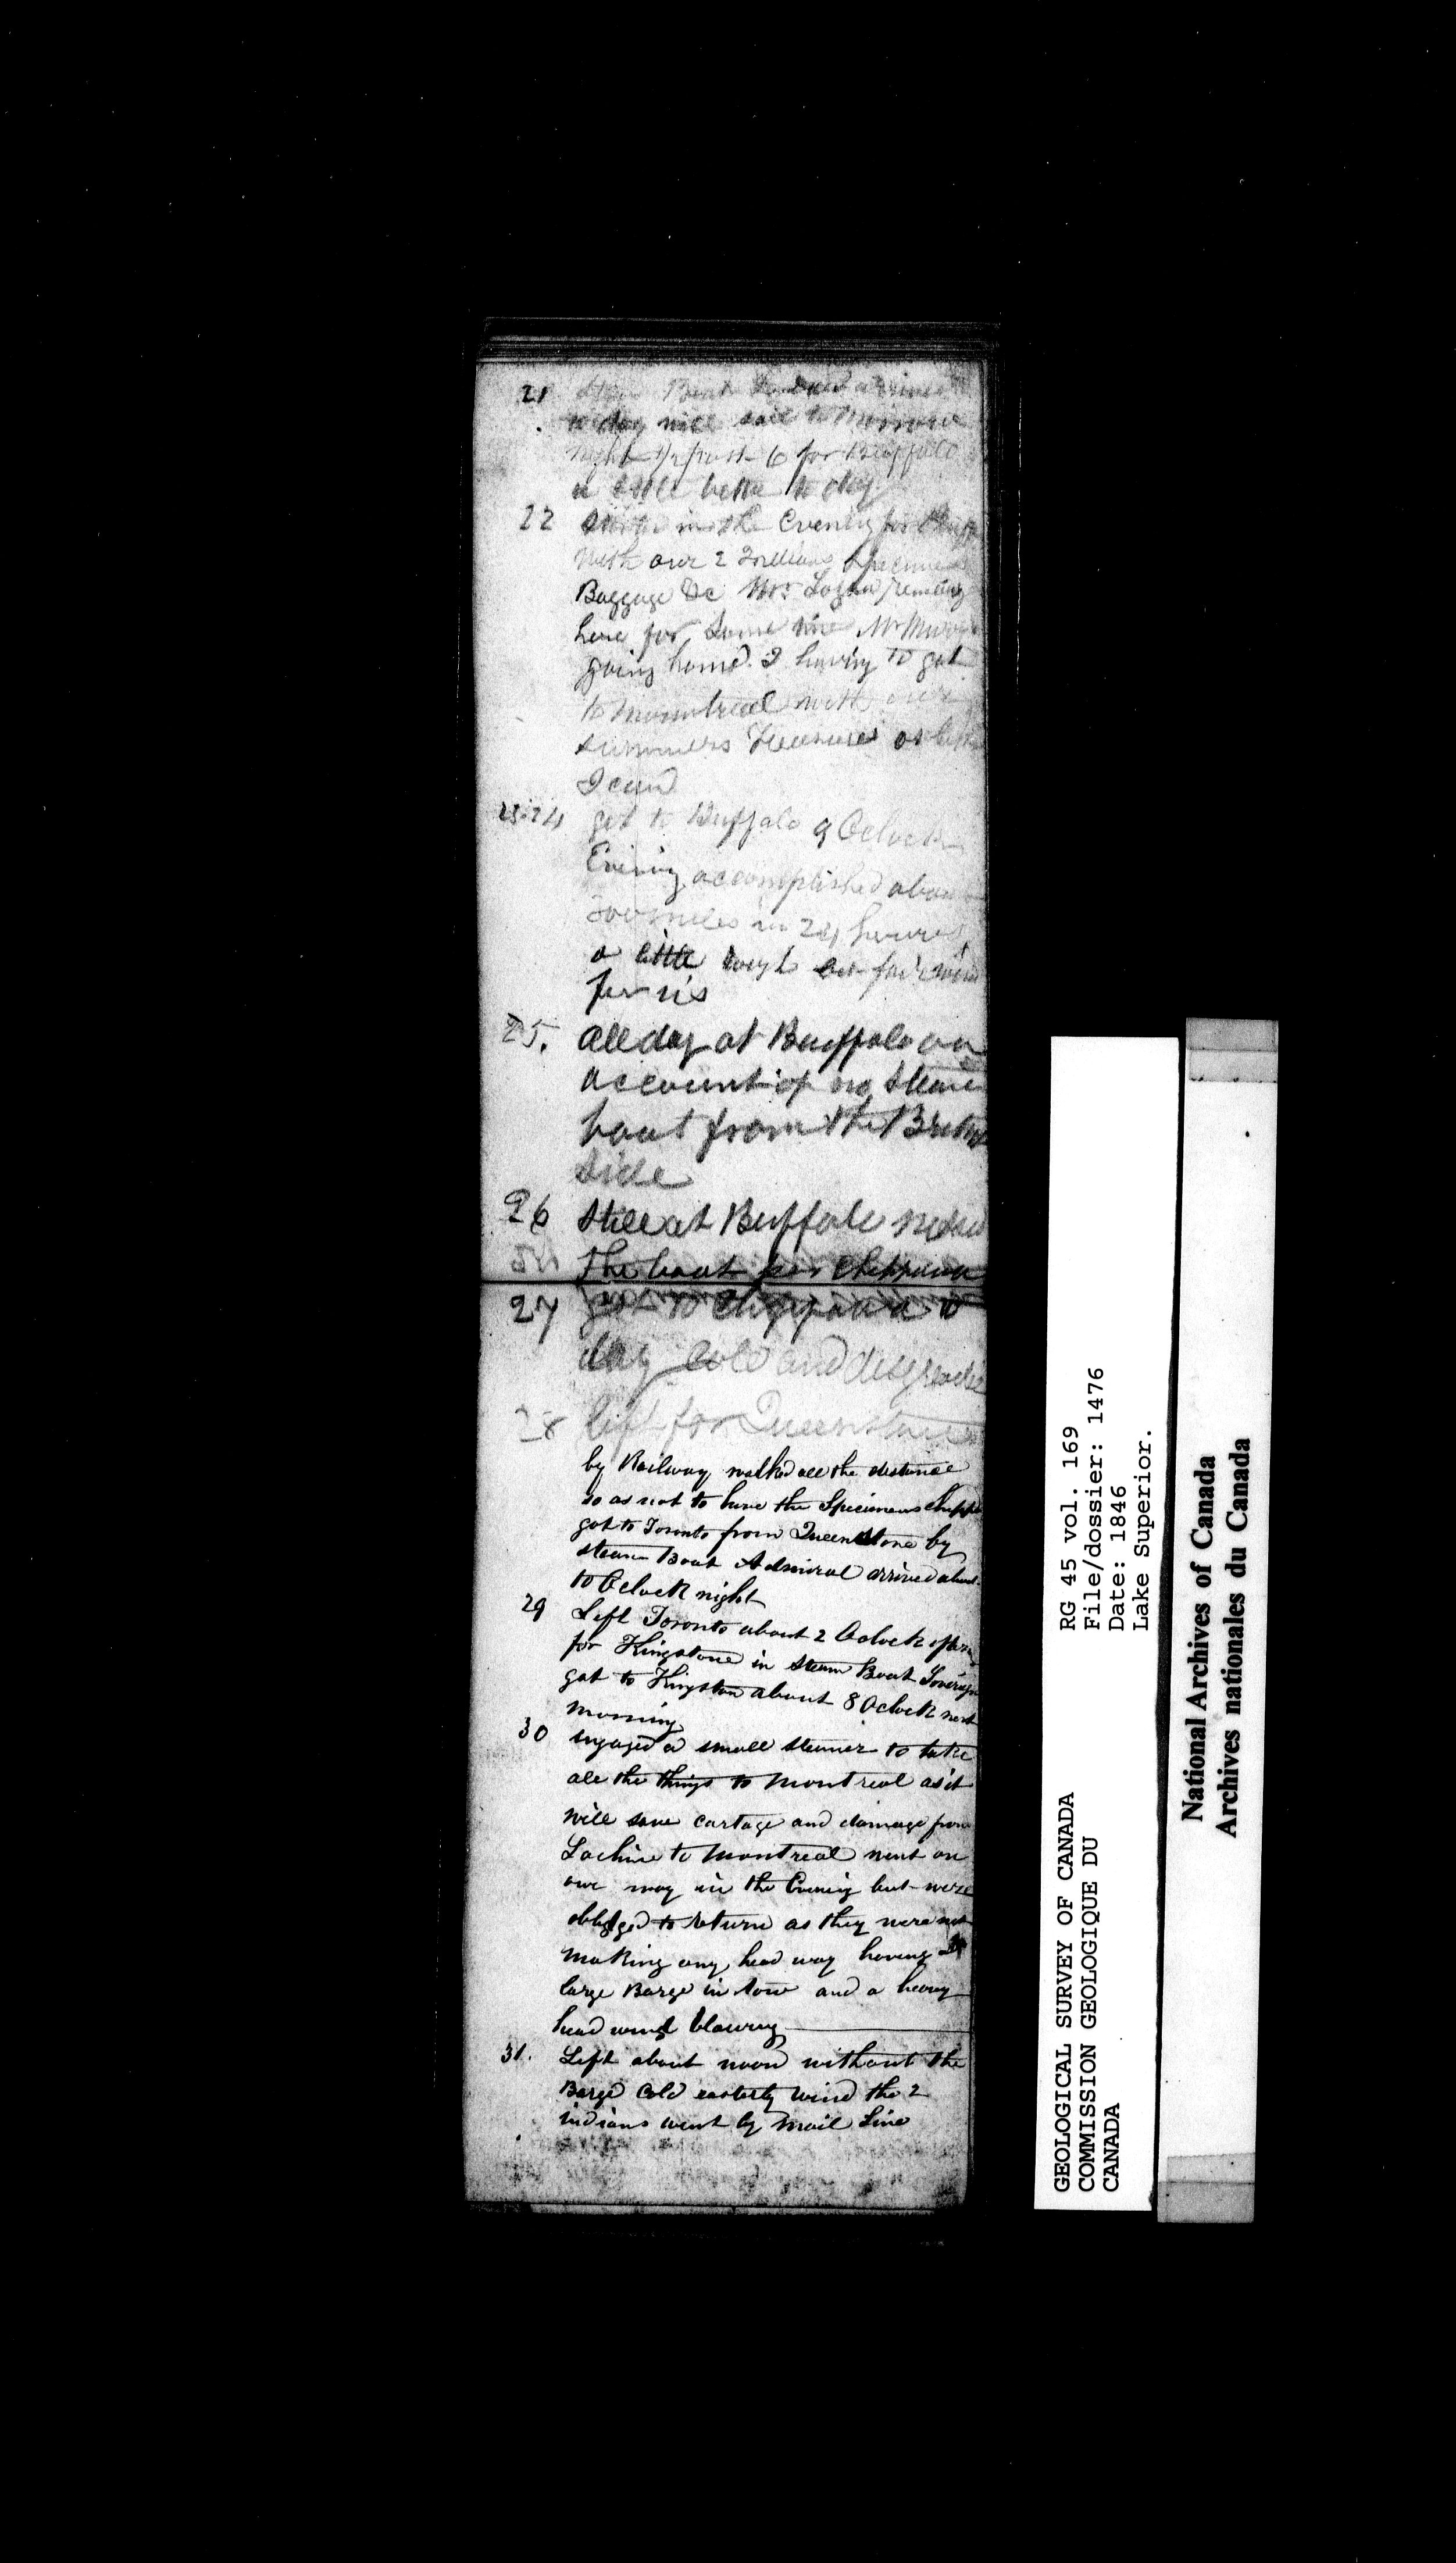 21 Steam Boat arrived
to day will sail to Morrow
night 1/2 past 6 for Buffalo
a little better to day
22 in the Evening for
with our 2 Indians Specimens
Baggage &c Mr Logan
here for some time Mr
going home. I having to get
to Montreal with our
summers Treasures as
I can
23-24 get to Buffalo 9 Oclock
Evening accomplished about
miles in 24 hours
a little rough but fair wind
for us
25. all day at Buffalo on
account of no Steam
boat from the
side
26 Still at Buffalo
the boat for Chippawa
27 got to Chippawa to
day Cold and
28 left for Queenstone
by Railway walked all the distance
so as not to have the Specimens
got to Toronto from Queenstone by
steam Boat Admiral arrived about
10 Oclock night
29 Left Toronto about 2 Oclock
for Kingstone in Steam Boat
got to Kingston about 8 Oclock next
morning
30 ingaged a small steamer to take
all the things to Montreal as it
will save cartage and damage from
Lachine to Montreal went on
our way in the Evening but were
obliged to return as they were not
making any head way having
large Barge in tow and a heavy
head wind blowing
31. Left about noon without the
Barge Cold easterly wind the 2
indians went by mail Line
GEOLOGICAL SURVEY OF CANADA
COMMISSION GEOLOGIQUE DU
CANADA
RG 45 vol. 169
File/dossier: 1476
Date: 1846
Lake Superior.
National Archives of Canada
Archives nationales du Canada